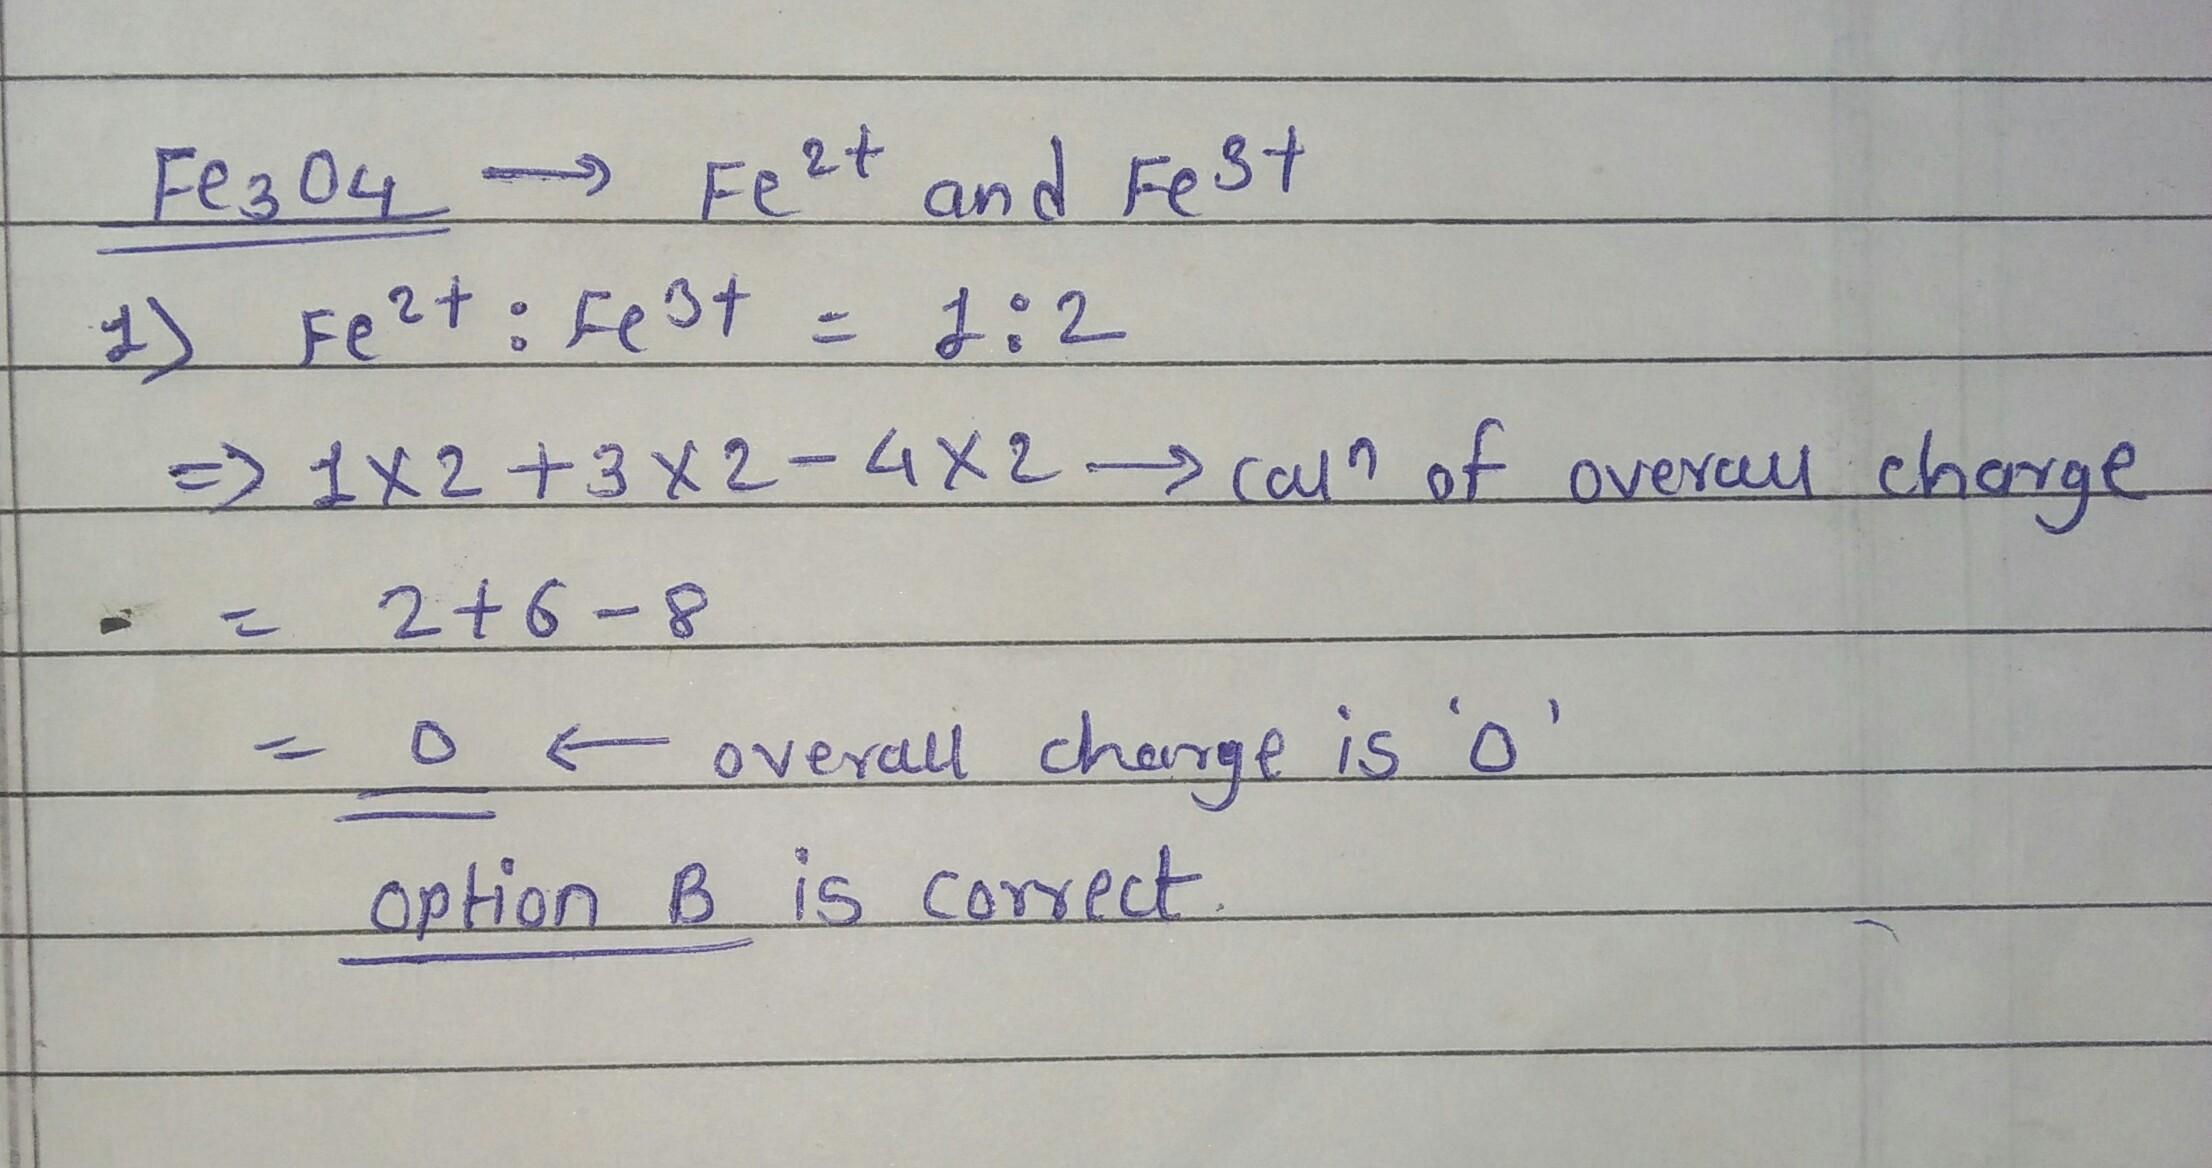 Fe₃O₄ → Fe²⁺ and Fe³⁺
1) Fe²⁺ : Fe³⁺ = 1:2
=> 1×2+3×2-4×2 → calⁿ of overall charge
= 2+6-8
= 0 ← overall charge is '0'
option B is correct.